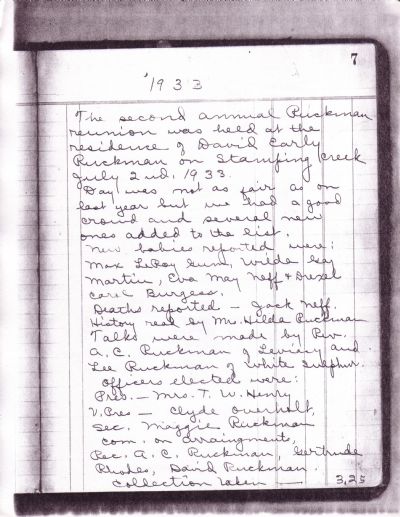 7
1933
The second annual Ruckman
reunion was held at the
residence of David Early
Ruckman on Stamping Creek
July 2nd, 1933.
Day was not as fair as on
last year but we had a good
crowd and several new
ones added to the list.
New babies reported were:
Max LeRoy Gum, Wilda Gay
Martin, Eva May Neff & Drexel
Carl Burgess.
Deaths reported — Jack Neff.
History read by Mrs. Hilda Ruckman
Talks were made by Rev.
A. C. Ruckman of and
Lee Ruckman of White Sulphur.
Officers elected were:
Pres. — Mrs. T. W. Henry
V. Pres — Clyde Overholt,
Sec. Maggie Ruckman
Com. on arraingments,
Rec. A. C. Ruckman, Gertrude
Rhodes, David Ruckman.
Collection taken — 3.25